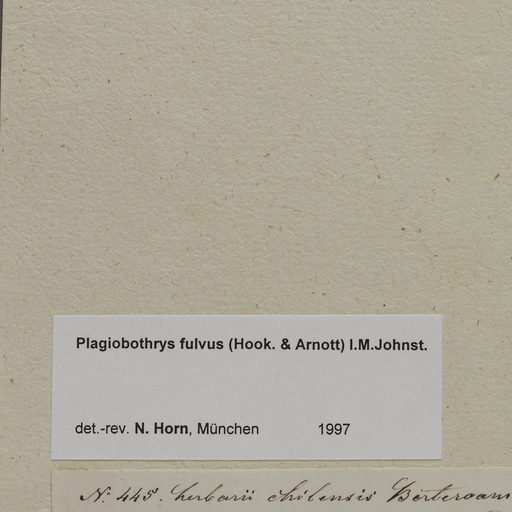 Plagiobothrys fulvus (Hook. & Arnott) I.M.Johnst.
det.-rev. N. Horn, München 1997
No. 445. herbarii chilensis Berteroani